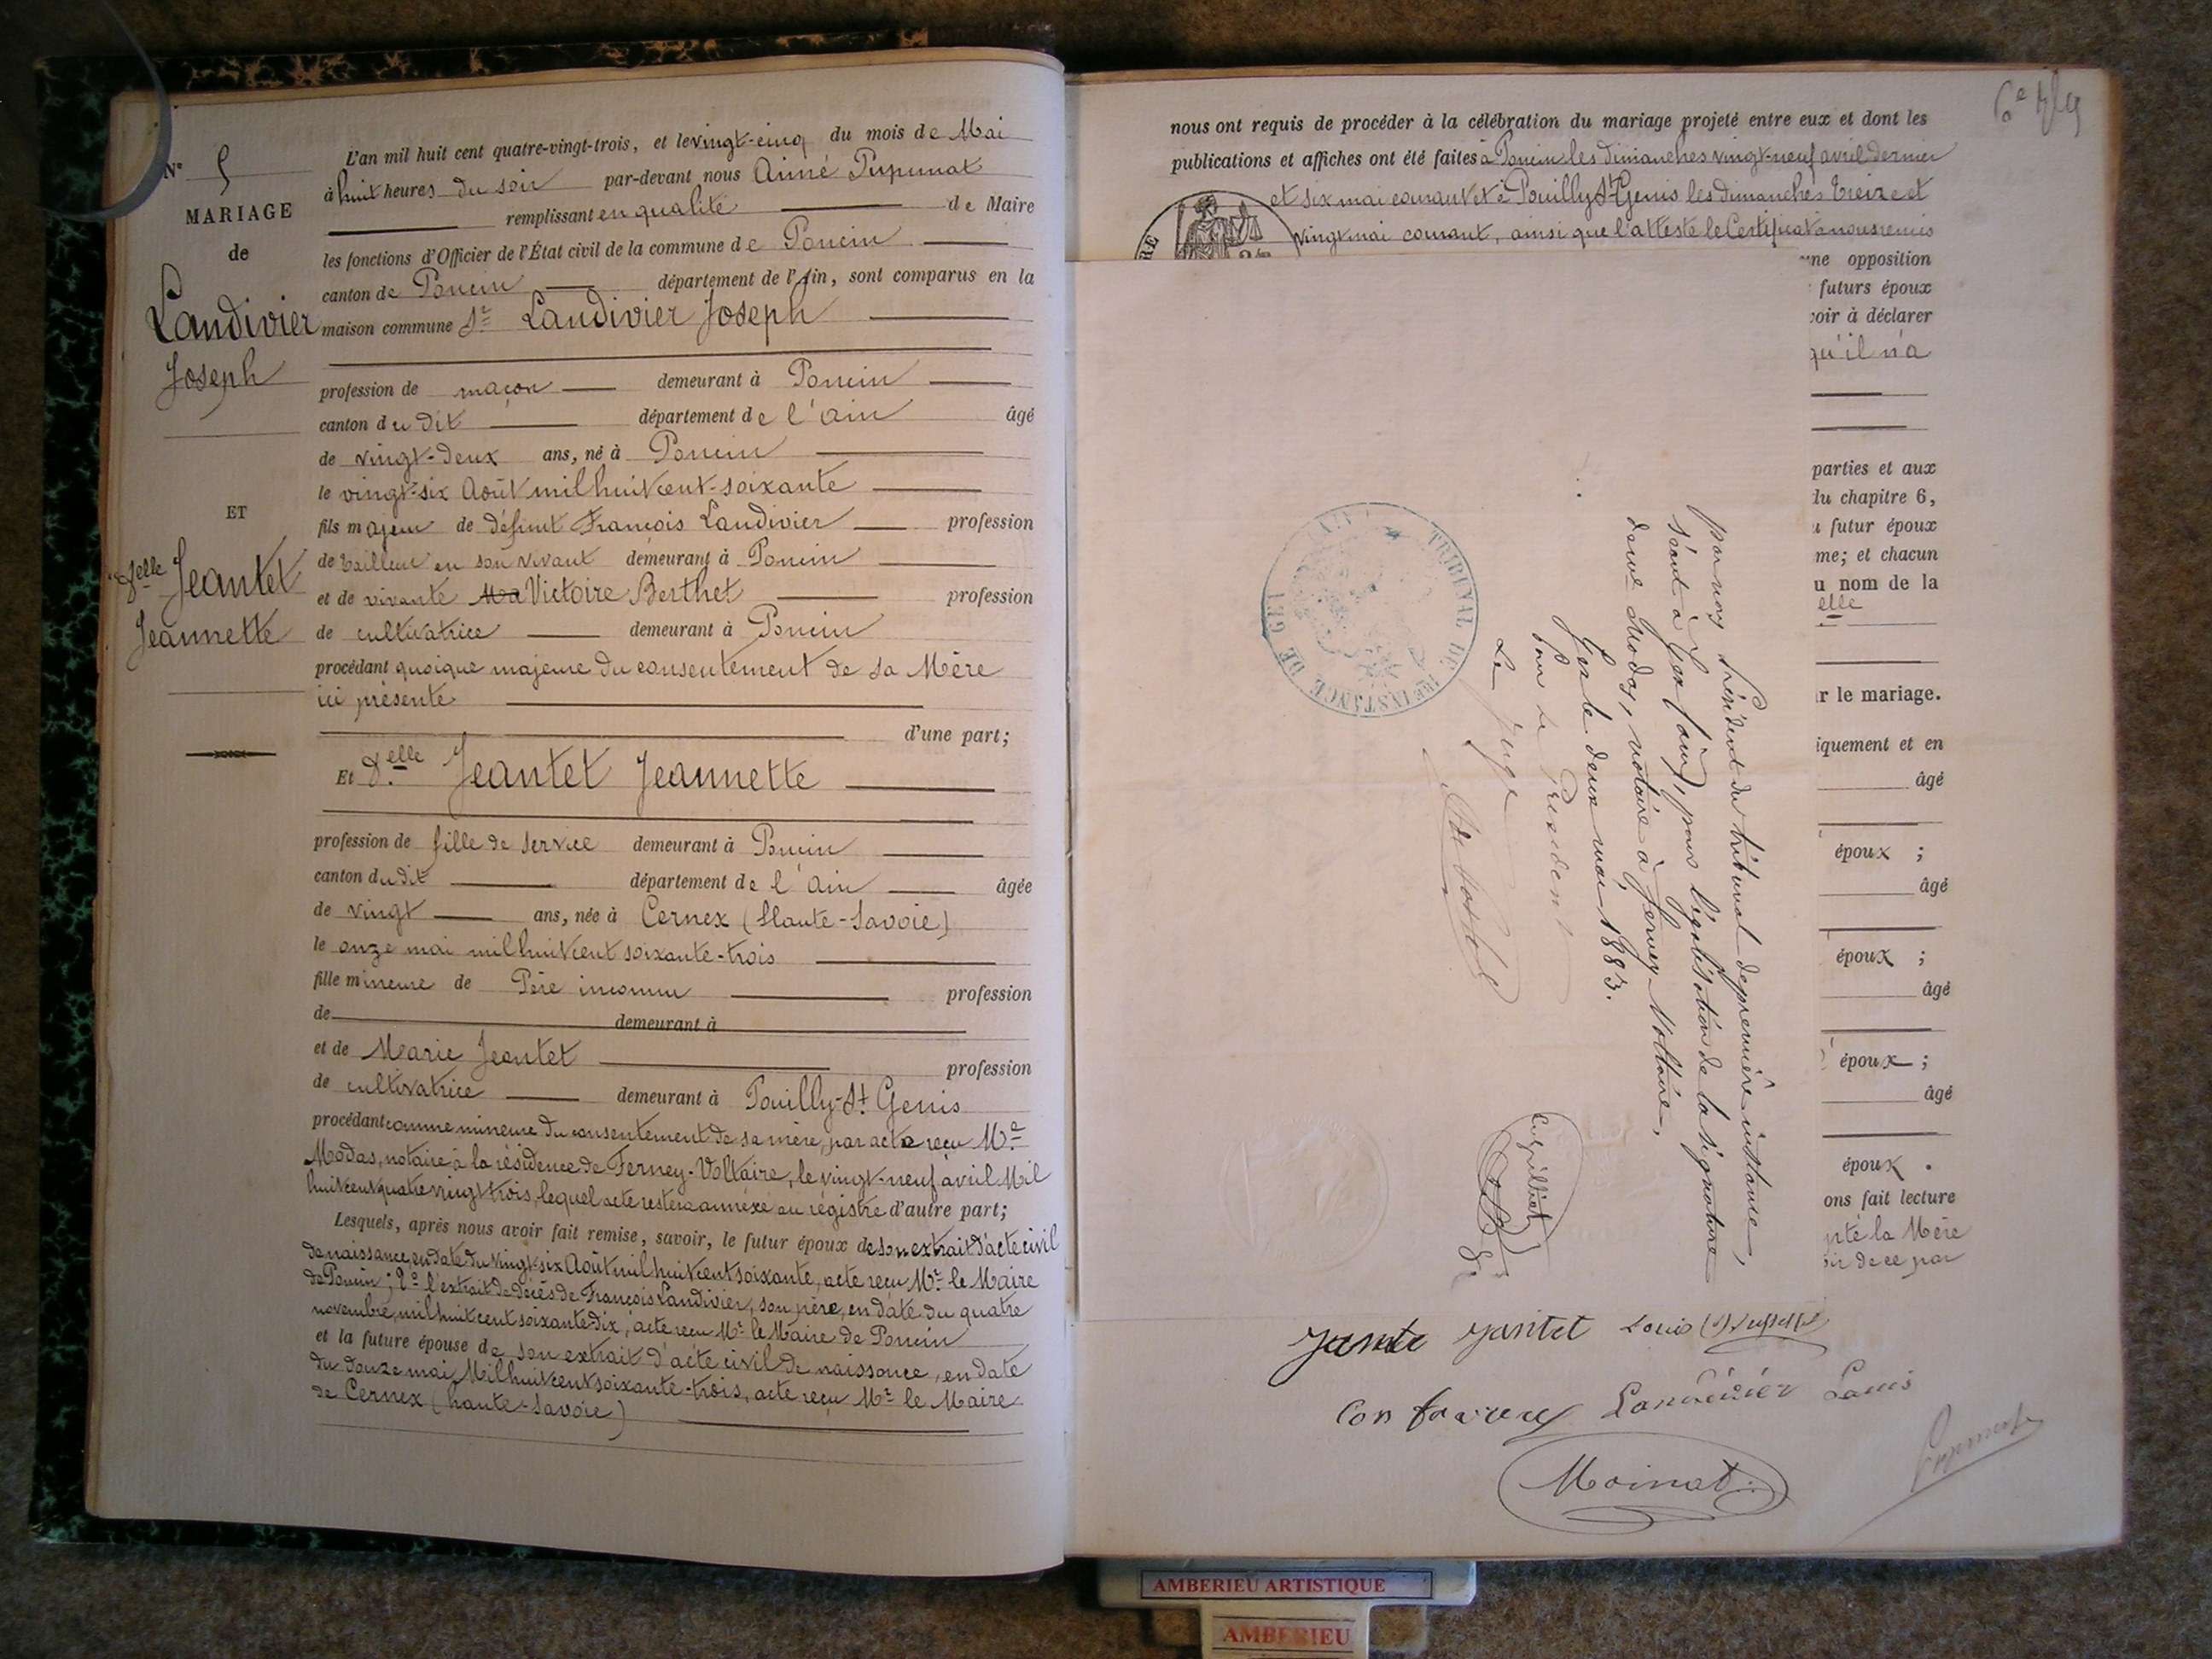 N° 5
MARIAGE
de
Landivier
Joseph
ET
Delle Jeantet
Jeannette
L'an mil huit cent quatre-vingt-trois, et le vingt-cinq du mois de Mai
à huit heures du soir par-devant nous Aimé Pupunat
remplissant en qualité de Maire
les fonctions d'Officier de l'État civil de la commune de Poncin
canton de Poncin département de l'Ain, sont comparus en la
maison commune Sr Landivier Joseph
profession de maçon demeurant à Poncin
canton dudit département de l'ain âgé
de vingt-deux ans, né à Poncin
le vingt-six Août mil huit cent-soixante
fils majeur de défunt François Landivier profession
de tailleur en son vivant demeurant à Poncin
et de vivante Victoire Berthet profession
de cultivatrice demeurant à Poncin
procédant quoique majeure du consentement de sa Mère
ici présente
d'une part;
Et Delle Jeantet Jeannette
profession de fille de service demeurant à Poncin
canton dudit département de l'ain âgée
de vingt ans, née à Cernex (Haute-Savoie)
le onze mai mil huit cent soixante-trois
fille mineure de Père inconnu profession
de demeurant à
et de Marie Jeantet profession
de cultivatrice demeurant à Pouilly-St Genis
procédant comme mineure du consentement de sa mère, par acte reçu Me
Modas, notaire à la résidence de Ferney-Voltaire, le vingt-neuf avril Mil
huit cent quatre vingt trois, lequel acte restera annexé au régistre d'autre part;
Lesquels, après nous avoir fait remise, savoir, le futur époux de son extrait d'acte civil
de naissance, en date du vingt-six Août mil huit cent soixante, acte reçu Mr le Maire
de Poncin; 2° l'extrait de décès de François Landivier, son père, en date du quatre
novembre mil huit cent soixante-dix, acte reçu Mr le Maire de Poncin
et la future épouse de son extrait d'acte civil de naissance, en date
du douze mai Mil huit cent soixante-trois, acte reçu Mr le Maire
de Cernex (haute-Savoie)
nous ont requis de procéder à la célébration du mariage projeté entre eux et dont les
publications et affiches ont été faites à Poncin les dimanches vingt-neuf avril dernier
et six mai courant et à Pouilly St Genis les dimanches treize et
vingt mai courant, ainsi que l'atteste le Certificat à nous remis
une opposition
futurs époux
voir à déclarer
qu'il n'a
parties et aux
du chapitre 6,
u futur époux
me; et chacun
u nom de la
elle
r le mariage.
iquement et en
âgé
époux ;
âgé
époux ;
âgé
époux ;
âgé
époux .
ons fait lecture
la Mère
de ce par
Vu par nous Président du tribunal de première instance,
séant à Gex (ain), pour légalisation de la signature
de Me Modas, notaire à Ferney Voltaire,
Gex le deux mai 1883.
Pour le Président
Le juge
TRIBUNAL DE 1RE INSTANCE DE GEX
(AIN)
Jantet Louis
Landivier Louis
Moinat
AMBERIEU ARTISTIQUE
AMBERIEU